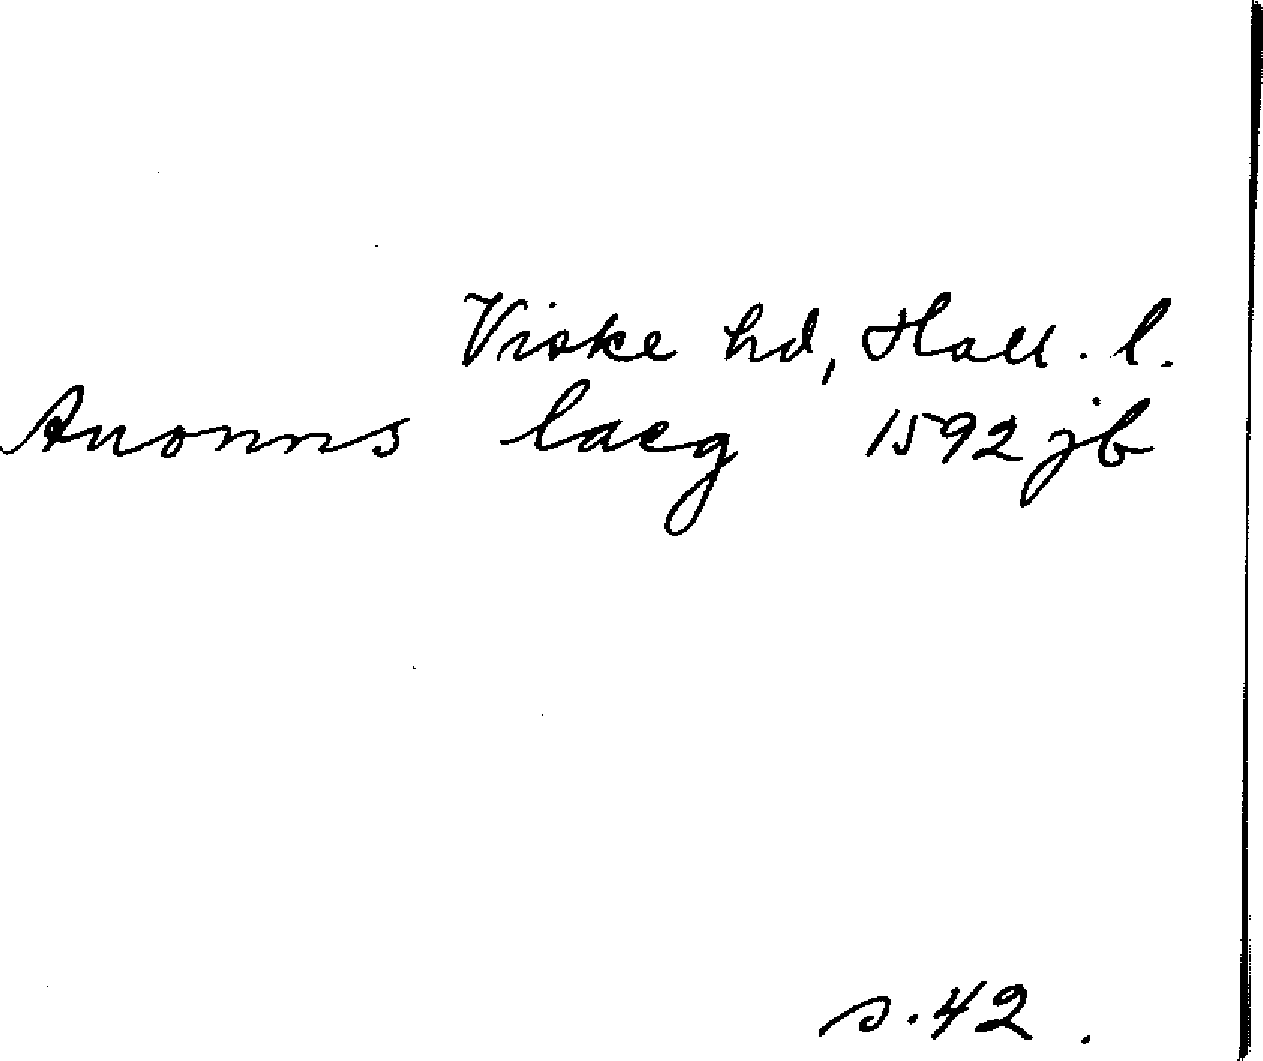 Viske hd, Hall. l.
Auonns laeg 1592 jb
s. 42.